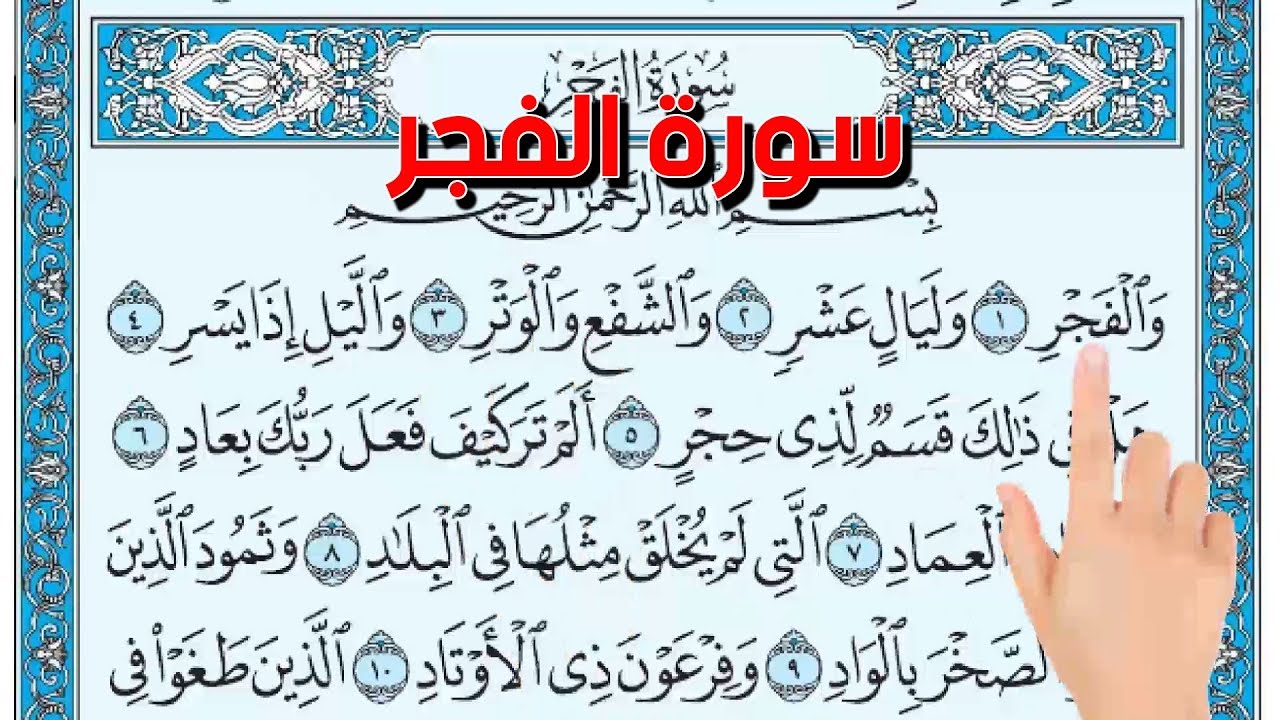 سُورَةُ الفَجْرِ
سورة الفجر
بِسْمِ اللَّهِ الرَّحْمَٰنِ الرَّحِيمِ
وَٱلْفَجْرِ ١ وَلَيَالٍ عَشْرٍ ٢ وَٱلشَّفْعِ وَٱلْوَتْرِ ٣ وَٱلَّيْلِ إِذَا يَسْرِ ٤
هَلْ فِى ذَٰلِكَ قَسَمٌ لِّذِى حِجْرٍ ٥ أَلَمْ تَرَ كَيْفَ فَعَلَ رَبُّكَ بِعَادٍ ٦
ٱلْعِمَادِ ٧ ٱلَّتِى لَمْ يُخْلَقْ مِثْلُهَا فِى ٱلْبِلَٰدِ ٨ وَثَمُودَ ٱلَّذِينَ
ٱلصَّخْرَ بِٱلْوَادِ ٩ وَفِرْعَوْنَ ذِى ٱلْأَوْتَادِ ١٠ ٱلَّذِينَ طَغَوْا۟ فِى